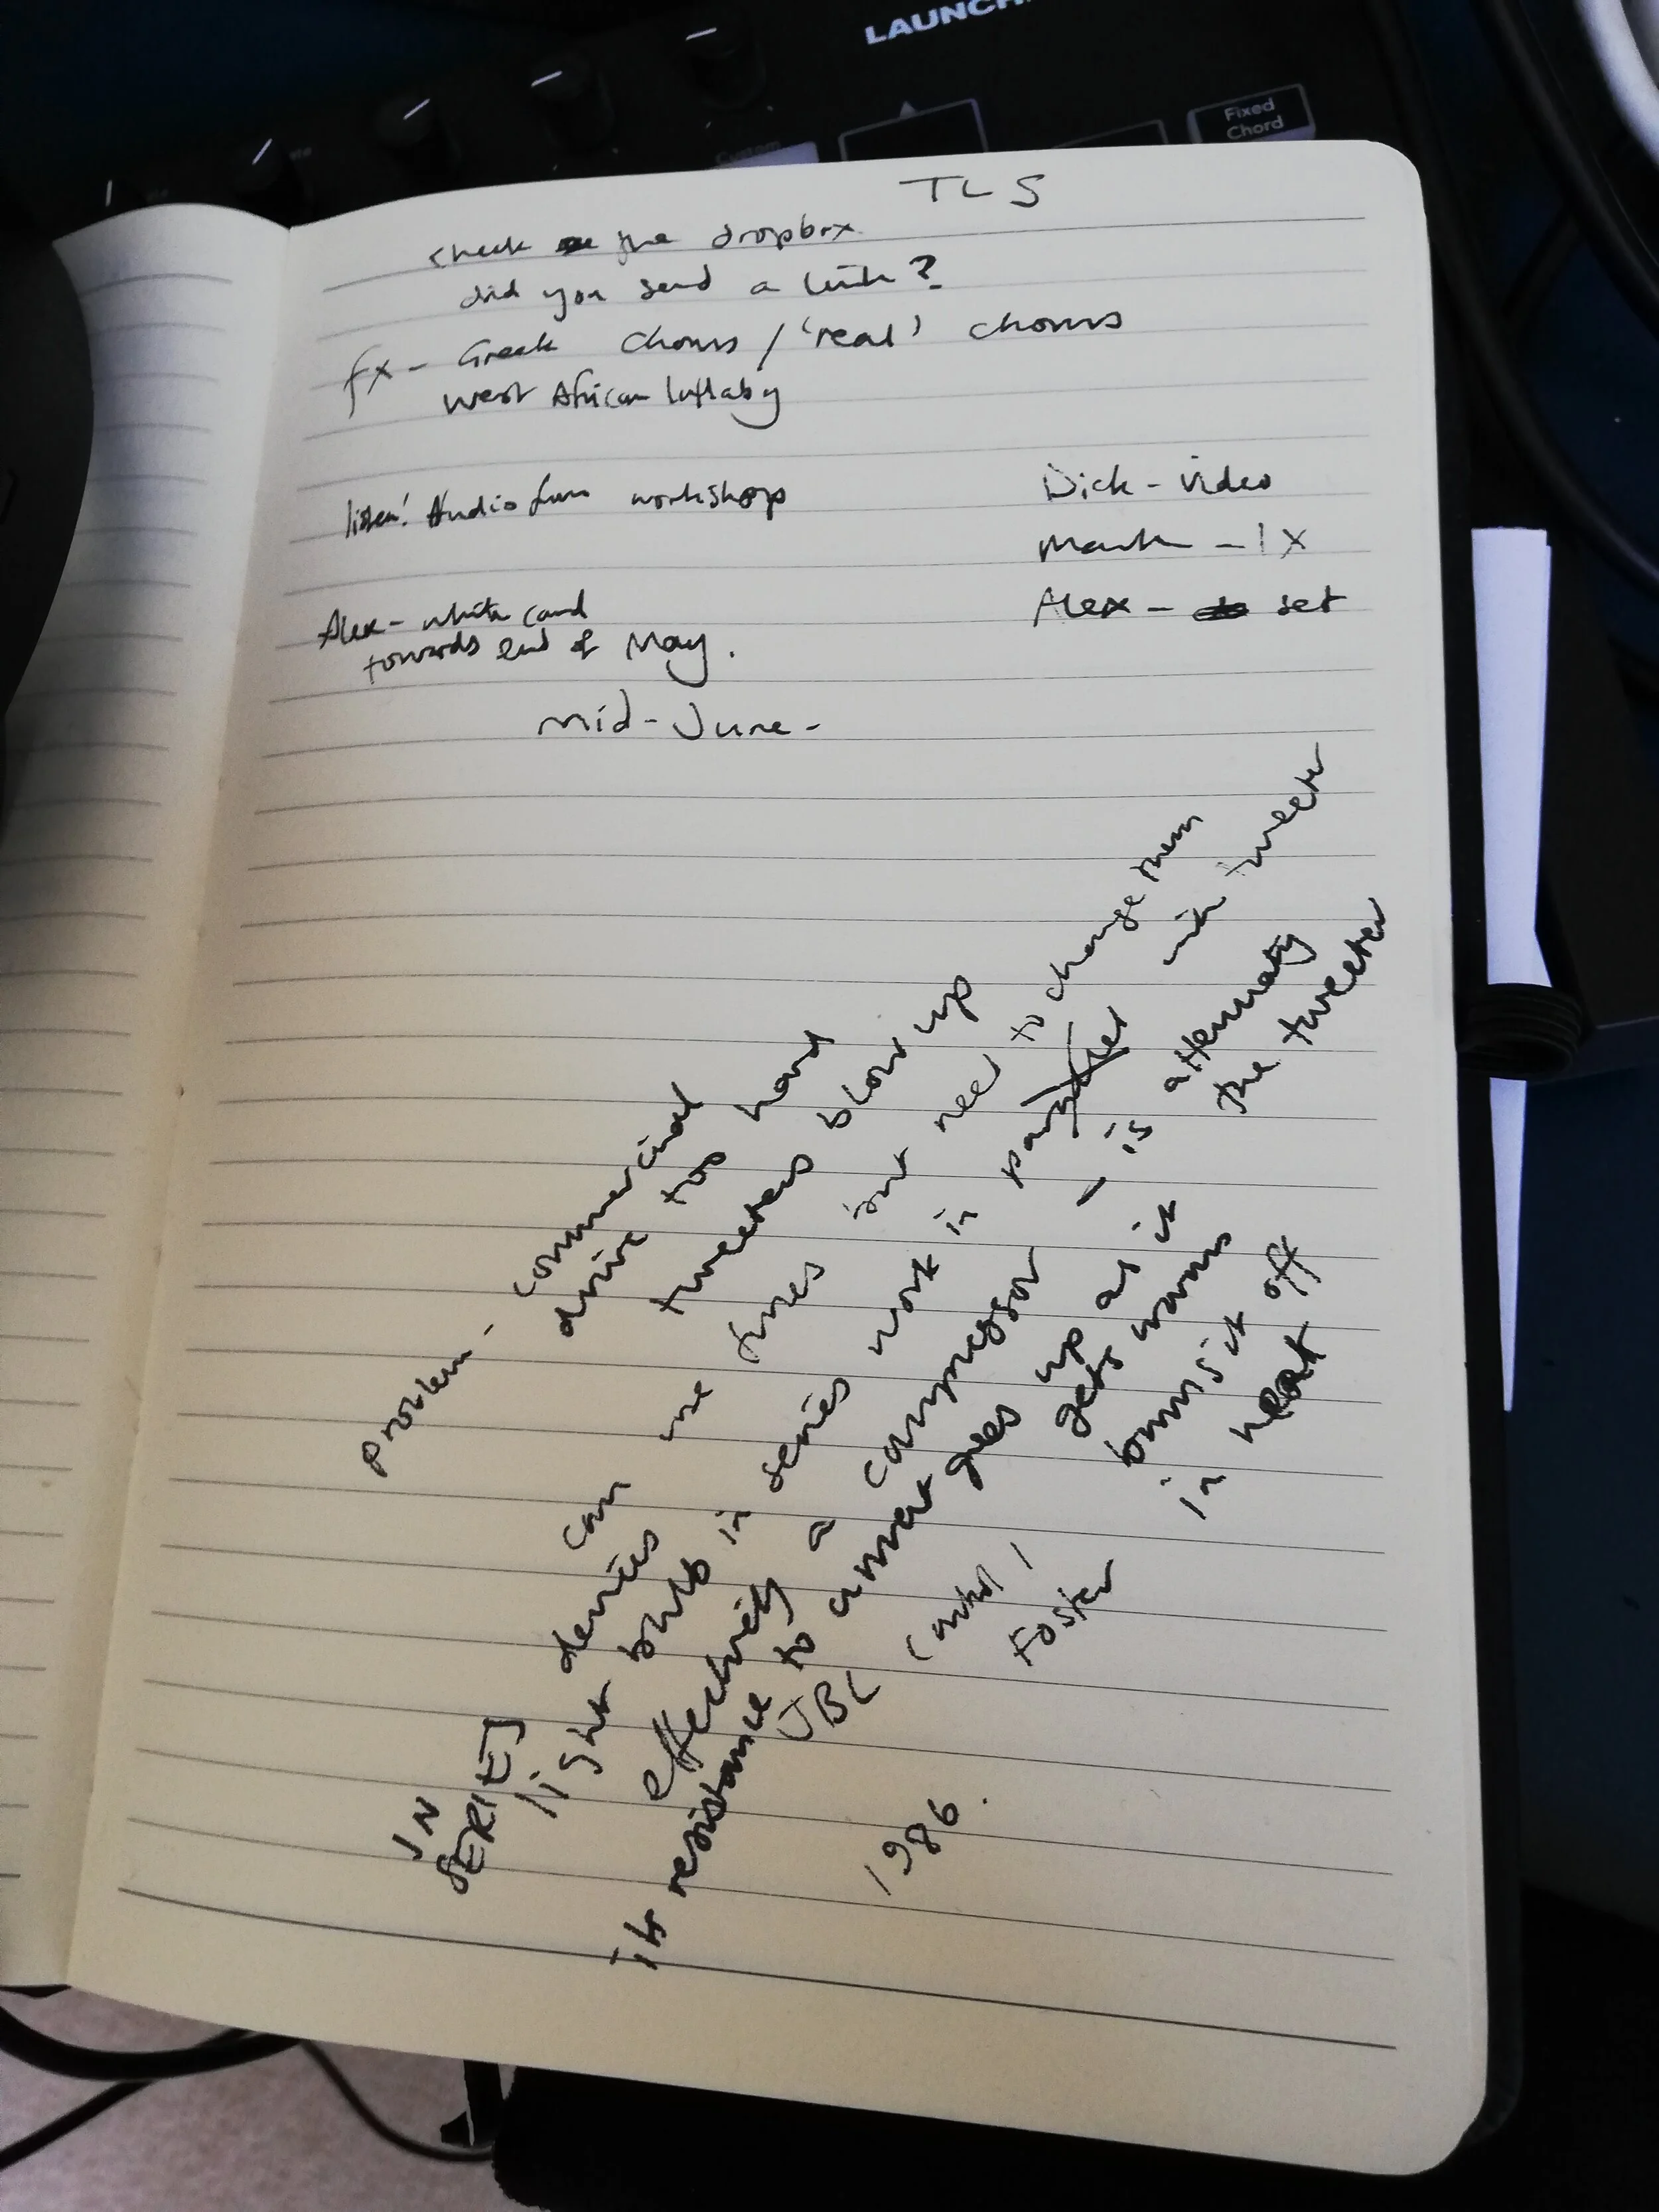 LAUNCH
Fixed
Chord
Custom
TLS
check the dropbox
did you send a link?
fx - Greek Chorus / 'real' chorus
West African lullaby
listen! Audio from workshop
Dick - video
Mark - LX
Alex - set
Alex - white card
towards end of May.
mid-June -
problem - commercial
drive too hard
tweeters blow up
can use fuses but need to change them
IN
SERIES
derives
light bulb in series work in parallel with tweeter
effectively a compressor - is attenuating
the tweeter
its resistance to current goes up as it
gets warm
burns it off
in heat
JBL Control 1
Foster
1986.